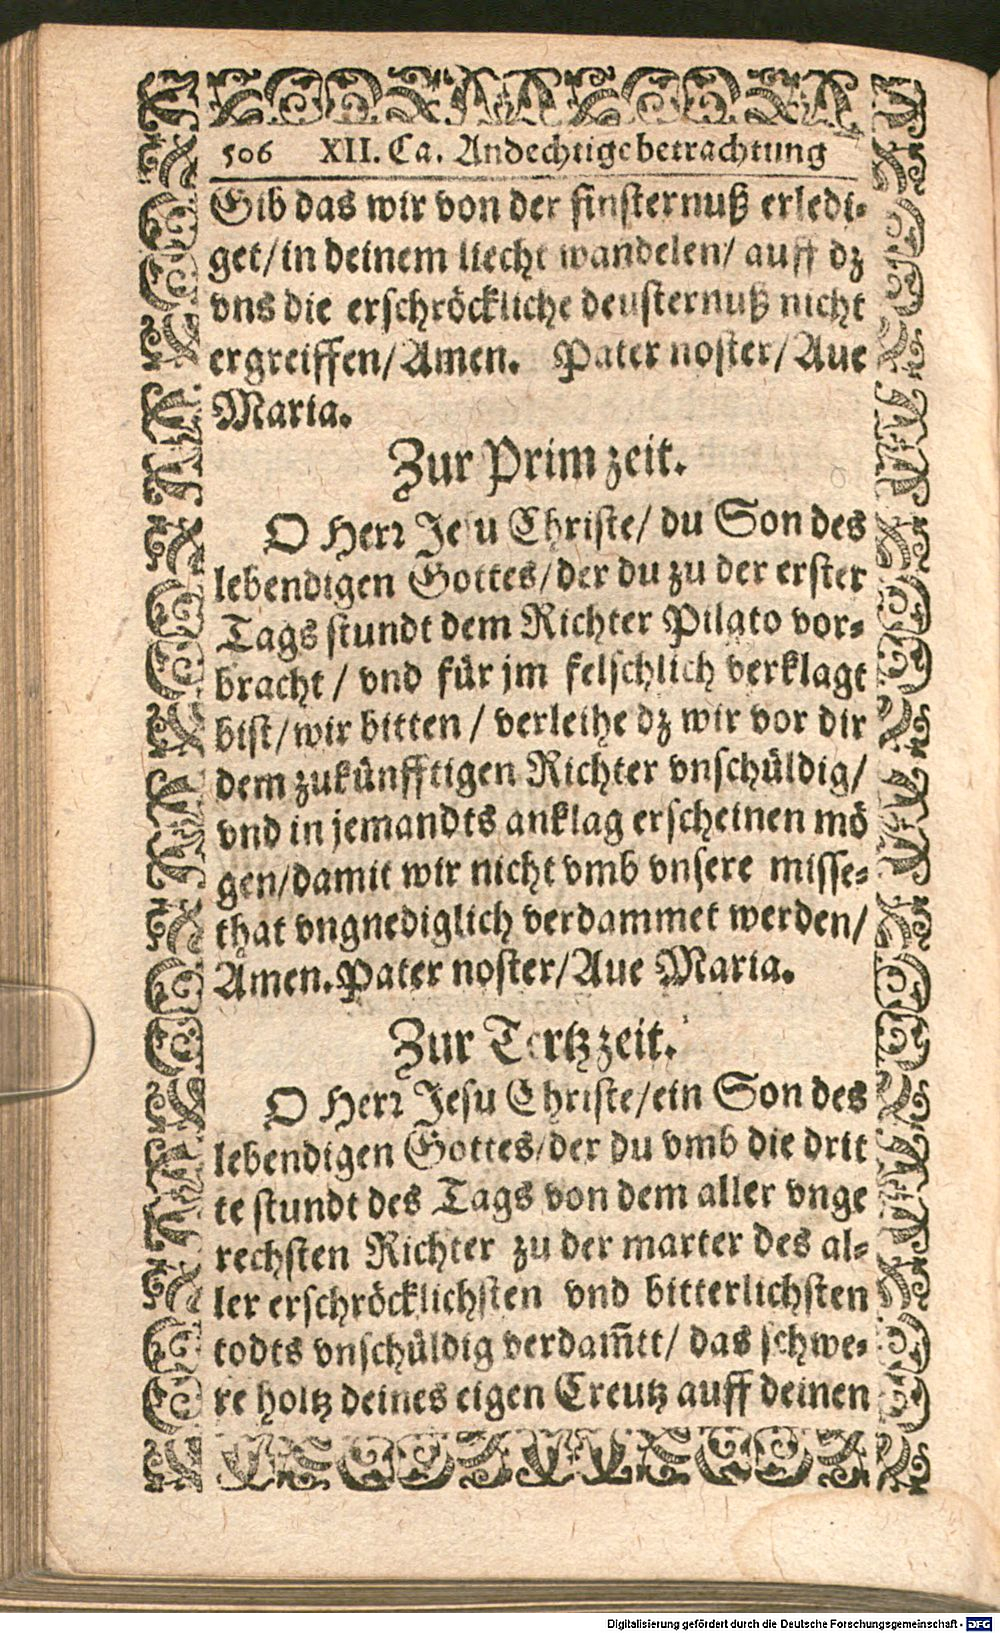 506 XII. Ca. Andechtige betrachtung
Gib das wir von der finsternuß erledi-
get/ in deinem liecht wandelen/ auff dz
vns die erschröckliche deusternuß nicht
ergreiffen/ Amen. Pater noster/ Aue
Maria.
Zur Prim zeit.
O Herr Jesu Christe/ du Son des
lebendigen Gottes/ der du zu der erster
Tags stundt dem Richter Pilato vor-
bracht/ vnd für jm felschlich verklagt
bist/ wir bitten/ verleihe dz wir vor dir
dem zukünfftigen Richter vnschüldig/
vnd in jemandts anklag erscheinen mö
gen/ damit wir nicht vmb vnsere misse-
that vngnediglich verdammet werden/
Amen. Pater noster/ Aue Maria.
Zur Tertz zeit.
O Herr Jesu Christe/ ein Son des
lebendigen Gottes/ der du vmb die drit
te stundt des Tags von dem aller vnge
rechsten Richter zu der marter des al-
ler erschröcklichsten vnd bitterlichsten
todts vnschüldig verdam̄tt/ das schwe-
re holtz deines eigen Creutz auff deinen
Digitalisierung gefördert durch die Deutsche Forschungsgemeinschaft - DFG